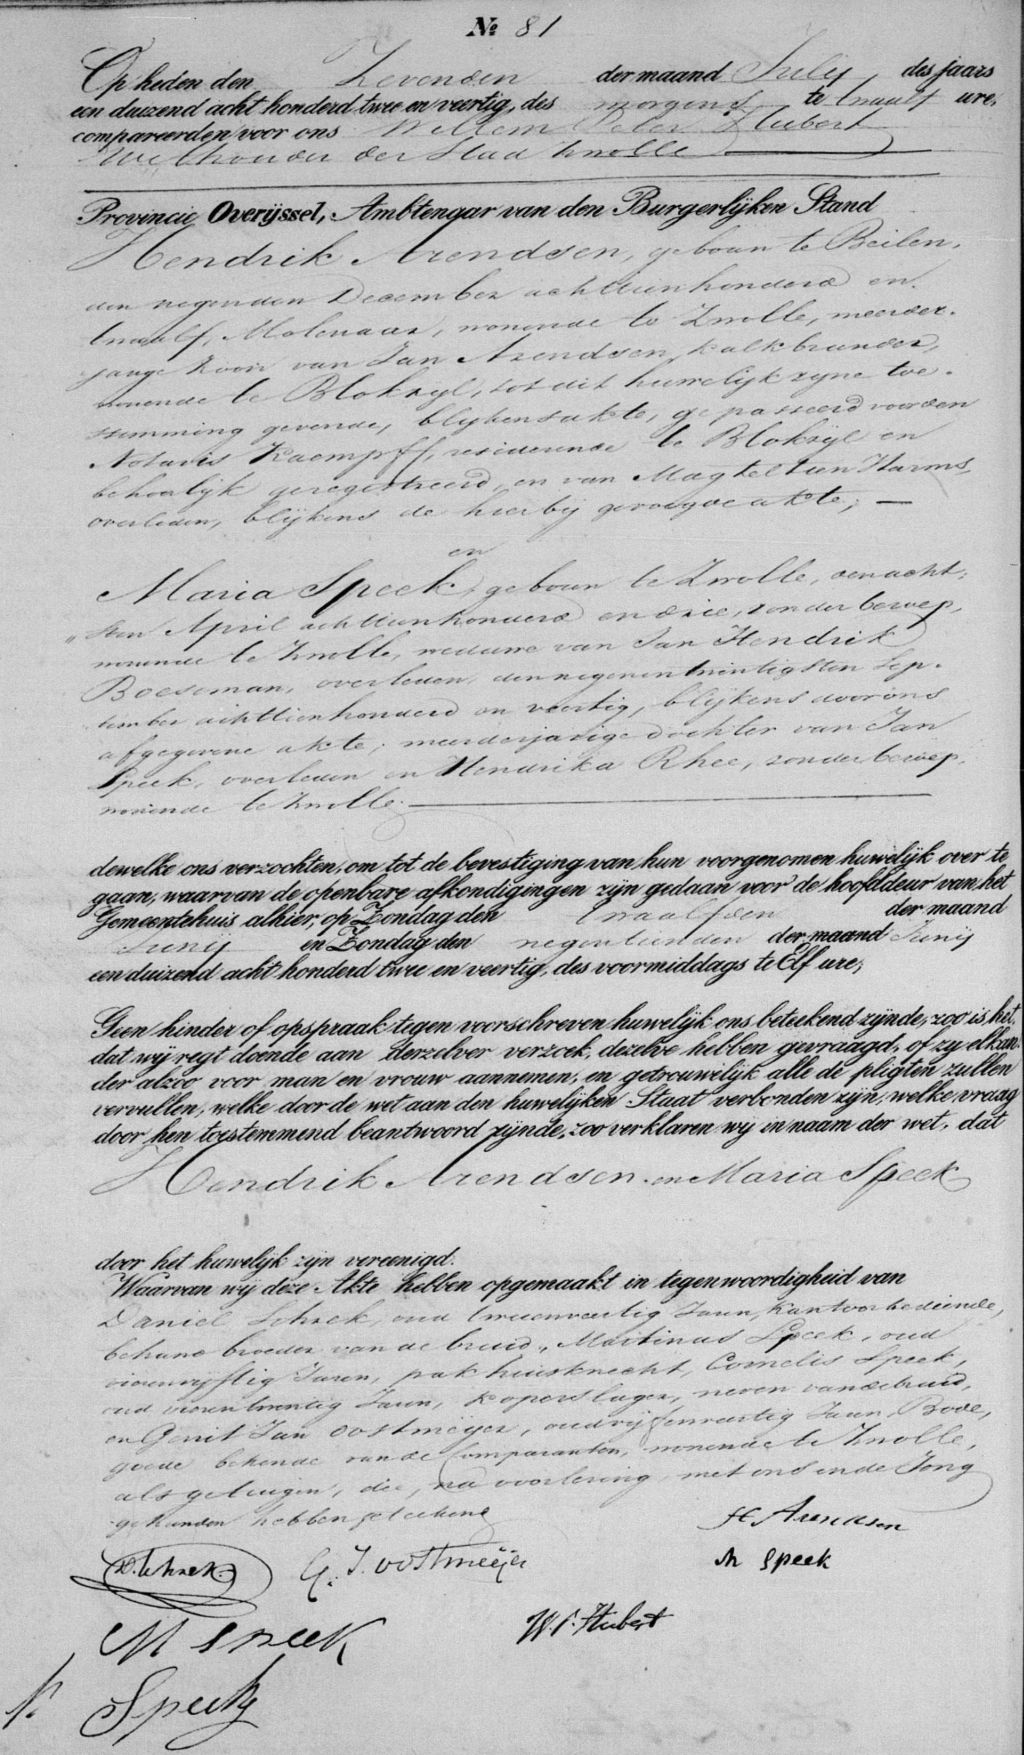 № 81
Op heden den Zevenden der maand Julij, des jaars
een duizend acht honderd twee en veertig, des morgens te twaalf ure,
compareerden voor ons Willem Peter Hubert
Wethouder der Stad Zwolle
Provincie Overijssel, Ambtenaar van den Burgerlijken Stand
Hendrik Arendsen, geboren te Beilen,
den negenden December achttienhonderd en
twaalf, Molenaar, wonende te Zwolle, meerder-
jarige Zoon van Jan Arendsen, kalkbrander,
wonende te Blokzyl, tot dit huwelijk zyne toe-
stemming gevende, blijkens akte, gepasseerd voor den
Notaris Kaempff, residerende te Blokzijl en
behoorlijk geregistreerd, en van Magteltien Harms,
overleden, blijkens de hierbij gevoegde akte; —
en
Maria Speek, geboren te Zwolle, den acht-
sten April achttienhonderd en drie, zonder beroep,
wonende te Zwolle, weduwe van Jan Hendrik
Boeseman, overleden den negenentwintigsten Sep-
tember achttienhonderd en veertig, blijkens door ons
afgegevene akte; meerderjarige dochter van Jan
Speek, overleden en Hendrika Rhee, zonder beroep,
wonende te Zwolle.
dewelke ons verzochten, om tot de bevestiging van hun voorgenomen huwelijk over te
gaan, waarvan de openbare afkondigingen zijn gedaan voor de hoofddeur van het
Gemeentehuis alhier, op Zondag den twaalfden der maand
Junij en Zondag den negentienden der maand Junij
een duizend acht honderd twee en veertig, des voormiddags te Elf ure;
Geen hinder of opspraak tegen voorschreven huwelijk ons beteekend zijnde, zoo is het,
dat wij regt doende aan derzelver verzoek, dezelve hebben gevraagd, of zy elkan-
der alzoo voor man en vrouw aannemen, en getrouwelijk alle de pligten zullen
vervullen, welke door de wet aan den huwelijken Staat verbonden zijn, welke vraag
door hen toestemmend beantwoord zijnde, zoo verklaren wy in naam der wet, dat
Hendrik Arendsen en Maria Speek
door het huwelijk zijn vereenigd.
Waarvan wij deze Akte hebben opgemaakt in tegenwoordigheid van
Daniel Schrek, oud tweeenveertig Jaren, kantoorbediende,
behuwd broeder van de bruid, Martinus Speek, oud
vierenvyftig Jaren, pakhuisknecht, Cornelis Speek,
oud vierentwintig Jaren, koperslager, neven van de bruid,
en Gerrit Jan Oostmeijer, oud vijfenveertig Jaren, Bode,
goede bekende van de Comparanten, wonende te Zwolle,
als getuigen, die, na voorlezing, met ons en de Jong
gehuwden hebben geteekend
H Arendsen
D. Schrek G. J. Oostmeijer M Speek
M Speek W. P. Hubert
Speek